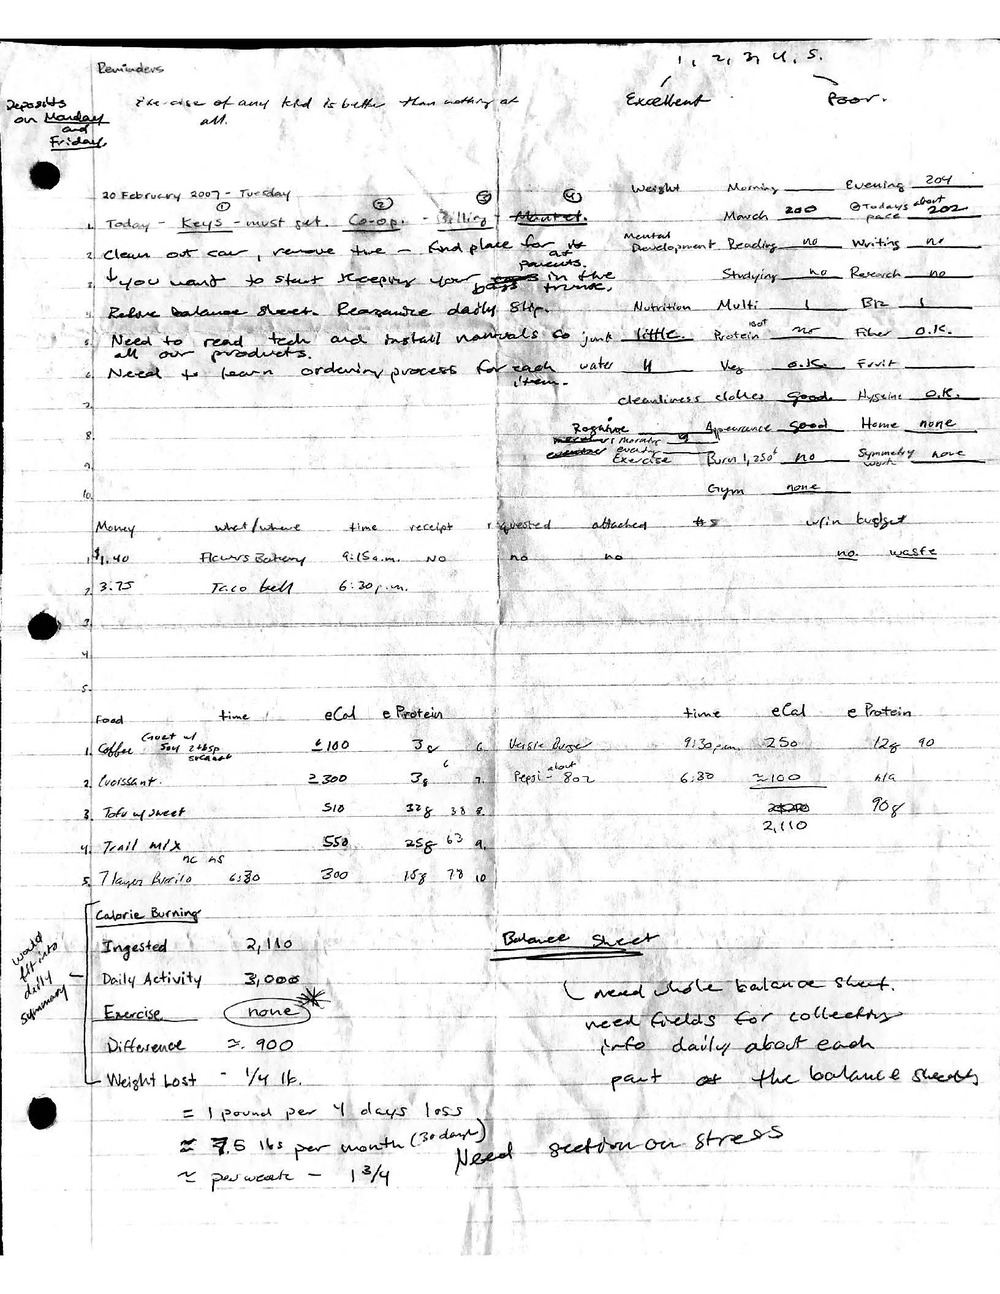 Reminders
1, 2, 3, 4, 5.
Excellent Poor.
Deposits
on Monday
and
Friday.
Exercise of any kid is better than nothing at
all.
20 February 2007 - Tuesday
1. Today - Keys - must get. Co-op. - Billing - Market.
1 2 3 4
2. Clean out car, remove the - find place for it
at
parents.
3. ↓ you want to start keeping your in the
trunk.
4. Refine balance sheet. Reorganize daily slip.
5. Need to read tech and install manuals so
all our products.
6. Need to learn ordering process for each
item.
7.
8.
9.
10.
Weight Morning Evening 204
March 200 @ Todays about
pace 202
Mental
Development Reading no Writing no
Studying no Research no
Nutrition Multi 1 B12 1
junk little. Protein no Fiber O.K.
water 4 Veg O.K. Fruit
Cleanliness clothes good. Hygeine O.K.
Rogaine Appearance good Home none
morning 9
evening
Exercise Burn 1,250 no Symmetry
work none
Gym none
Money what/where time receipt requested attached #s w/in budget
1. $1.40 Flours Bakery 9:15 a.m. No no no no. waste
2. 3.75 Taco bell 6:30 p.m.
3.
4.
5.
Food time eCal e Protein
1. Coffee w/ soy 2 tbsp ≤100 3g
2. Croissant. ≥300 3g 6
3. Tofu w/ sweet 510 32g 38
4. Trail mix 550 25g 63
nc ns
5. 7 layer Burrito 6:30 300 15g 78
time eCal e Protein
6. Veggie Burger 9:30 p.m. 250 12g 90
7. Pepsi - about 8oz 6:30 ≈100 n/a
8. 90g
2,110
9.
10
Calorie Burning
Ingested 2,110
Daily Activity 3,000
Exercise none
Difference ≈. 900
Weight Lost - 1/4 lb.
= 1 pound per 4 days loss
≈ 7.5 lbs per month (30 days)
≈ per week - 1 3/4
would
fit into
daily
summary
Balance Sheet
need whole balance sheet.
need fields for collecting
info daily about each
part of the balance sheets
Need section on stress